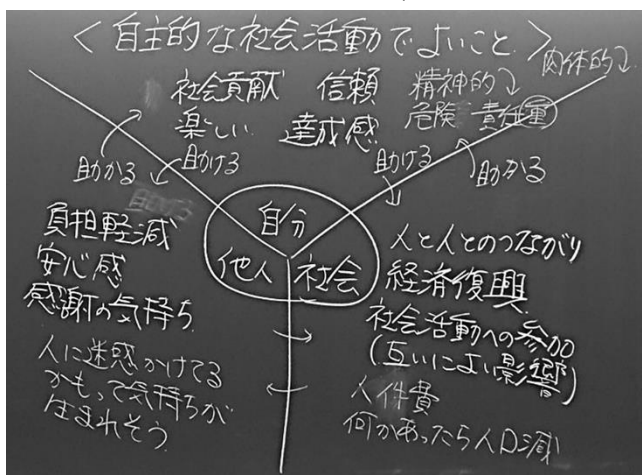 ＜自主的な社会活動でよいこと＞
肉体的↓
社会貢献 信頼 精神的↓
楽しい 達成感 危険 責任重
助かる 助ける
助ける 助かる
自分
他人 社会
負担軽減
安心感
感謝の気持ち
人に迷惑かけてる
かもって気持ちが
生まれそう
人と人とのつながり
経済復興
社会活動への参加
(互いによい影響)
人件費
何かあったら人口減